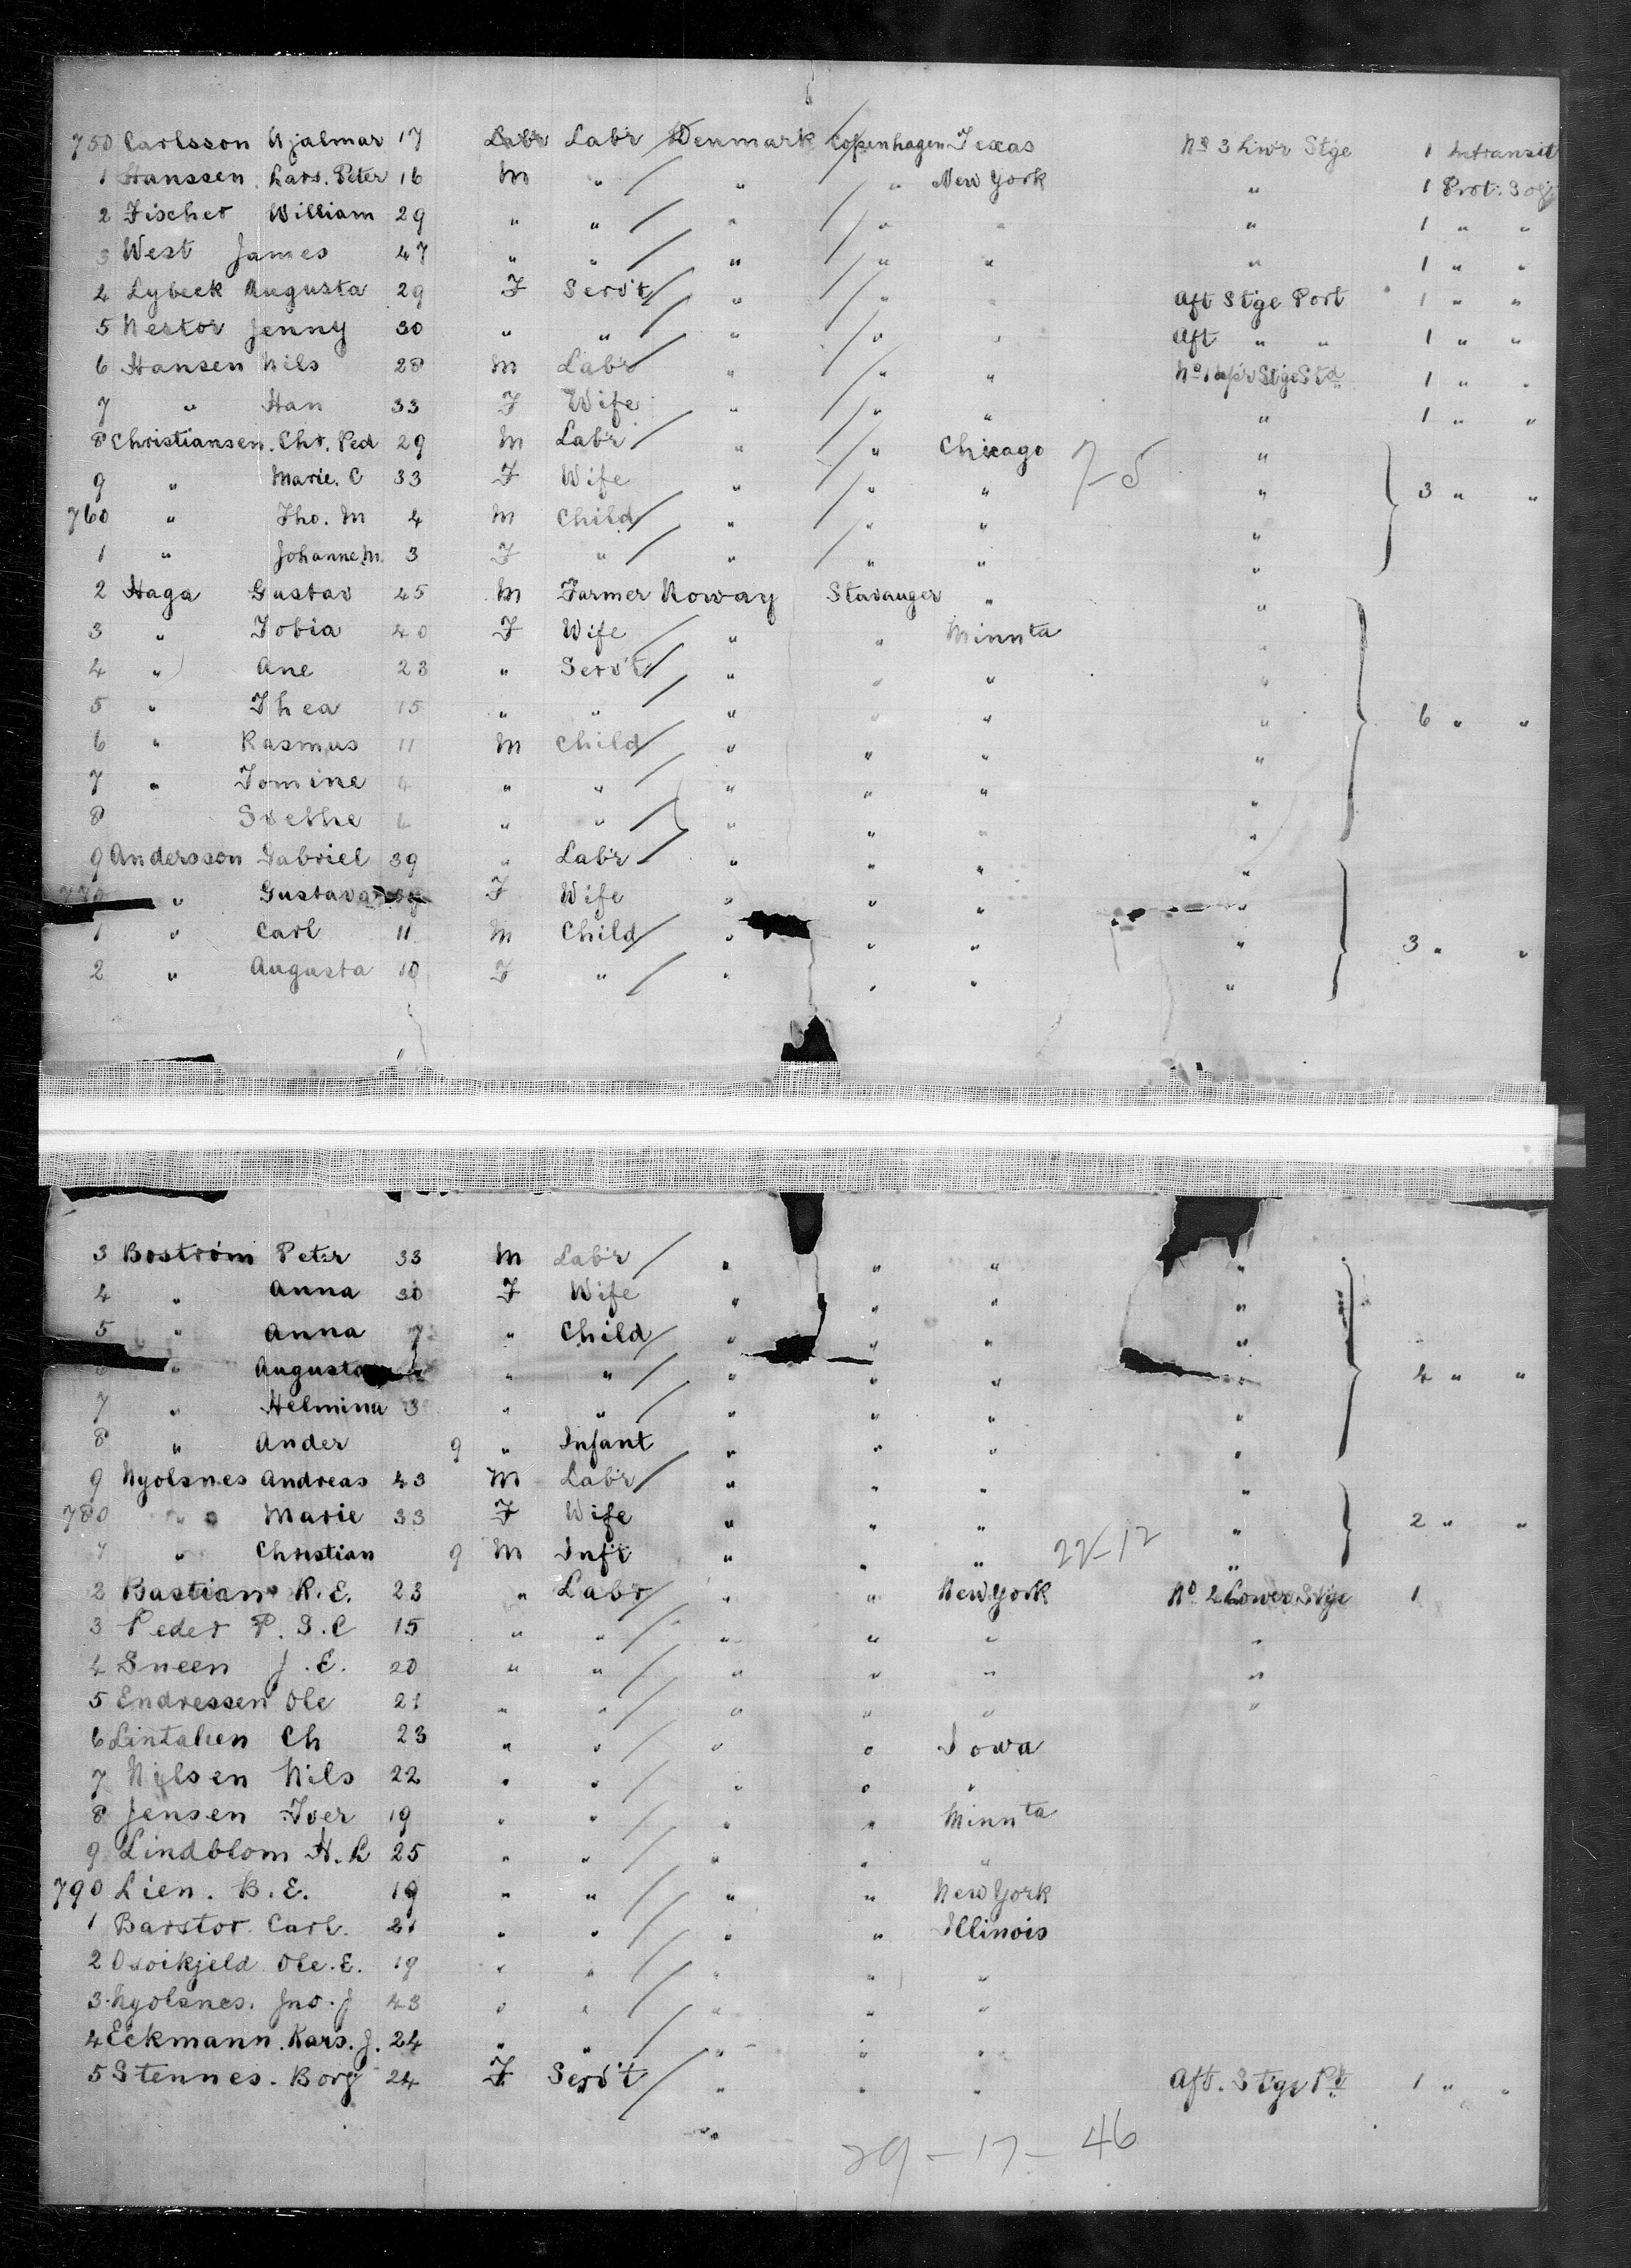 750 Carlsson Hjalmar 17 Labr Labr Denmark Copenhagen Texas No 3 Lwr Stge 1 Intransit
1 Hanssen. Lars. Peter 16 M " " " New York " 1 Prot. 3
2 Fischer William 29 " " " " " " 1 " "
3 West James 47 " " " " " " 1 " "
4 Lybeck Augusta 29 F Serv't " " " Aft Stge Port 1 " "
5 Nestor Jenny 30 " " " " " Aft " " 1 " "
6 Hansen Nils 28 M Lab'r " " " No 1 Up'r Stge Std 1 " "
7 " Han 33 F Wife " " " " 1 " "
8 Christiansen. Chr. Ped 29 M Lab'r " " Chicago 7-5 "
9 " Marie. C 33 F Wife " " " " 3 " "
760 " Tho. M 4 M Child " " " "
1 " Johanne M. 3 F " " " " "
2 Haga Gustav 45 M Farmer Noway Stavanger " "
3 " Tobia 40 F Wife " " Minnta "
4 " Ane 23 " Serv't " " " "
5 " Thea 15 " " " " " " 6 " "
6 " Rasmus 11 M Child " " " "
7 " Tomine 4 " " " " " "
8 " " " " " "
9 Andersson Gabriel 39 " Lab'r " " " "
770 " Gustava F Wife " " " "
1 " Carl 11 M Child " " " " 3 " "
2 " Augusta 10 F " " " " "
3 Boström Peter 33 M Lab'r " " " "
4 " Anna 30 F Wife " " " "
5 " Anna 7 " Child " " " "
6 " Augusta " " " " " " 4 " "
7 " Helmina 3 " " " " " "
8 " Ander 9 " Infant " " " "
9 Nyolsnes Andreas 43 M Lab'r " " " "
780 " Marie 33 F Wife " " " " 2 " "
1 " Christian 9 M Inf't " " " 22-12 "
2 Bastian R. E. 23 " Lab'r " " New York No 2 Lower Stge 1
3 Peder P. S. C 15 " " " " " "
4 Sneen J. E. 20 " " " " " "
5 Endressen Ole 21 " " " " " "
6 Lintalien Ch 23 " " " " Iowa
7 Nilsen Nils 22 " " " " "
8 Jensen Iver 19 " " " " Minnta
9 Lindblom H. L 25 " " " " "
790 Lien. B. E. 19 " " " " New York
1 Barstor. Carl. 21 " " " " Illinois
2 Osvikjeld Ole. E. 19 " " " " "
3 Nyolsnes. Jno. J 43 " " " " "
4 Eckmann. Kars. J. 24 " " " " "
5 Stennes. Borg 24 F Serv't " " " Aft. Stge Pt 1 " "
29-17-46